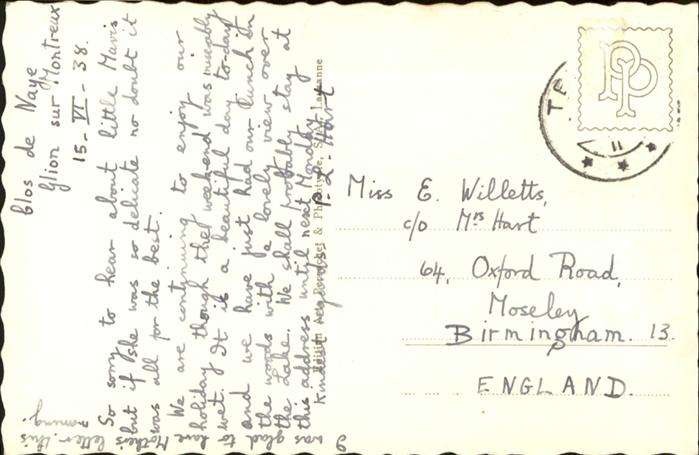 Clos de Naye
Glion sur Montreux
15 - VI - 38.
So sorry to hear about little Mavis
but if she was so delicate no doubt it
was all for the best.
We are continuing to enjoy our
holiday though the weekend was miserably
wet. It is a beautiful day to-day
and we have just had our lunch in
the woods with a lovely view over
the Lake. We shall probably stay at
this address until next Monday.
Kindest regards.
I was glad to have Mother's letter this
morning.
Lausanne
Miss E. Willetts,
c/o Mrs Hart
64, Oxford Road,
Moseley
Birmingham. 13.
ENGLAND.